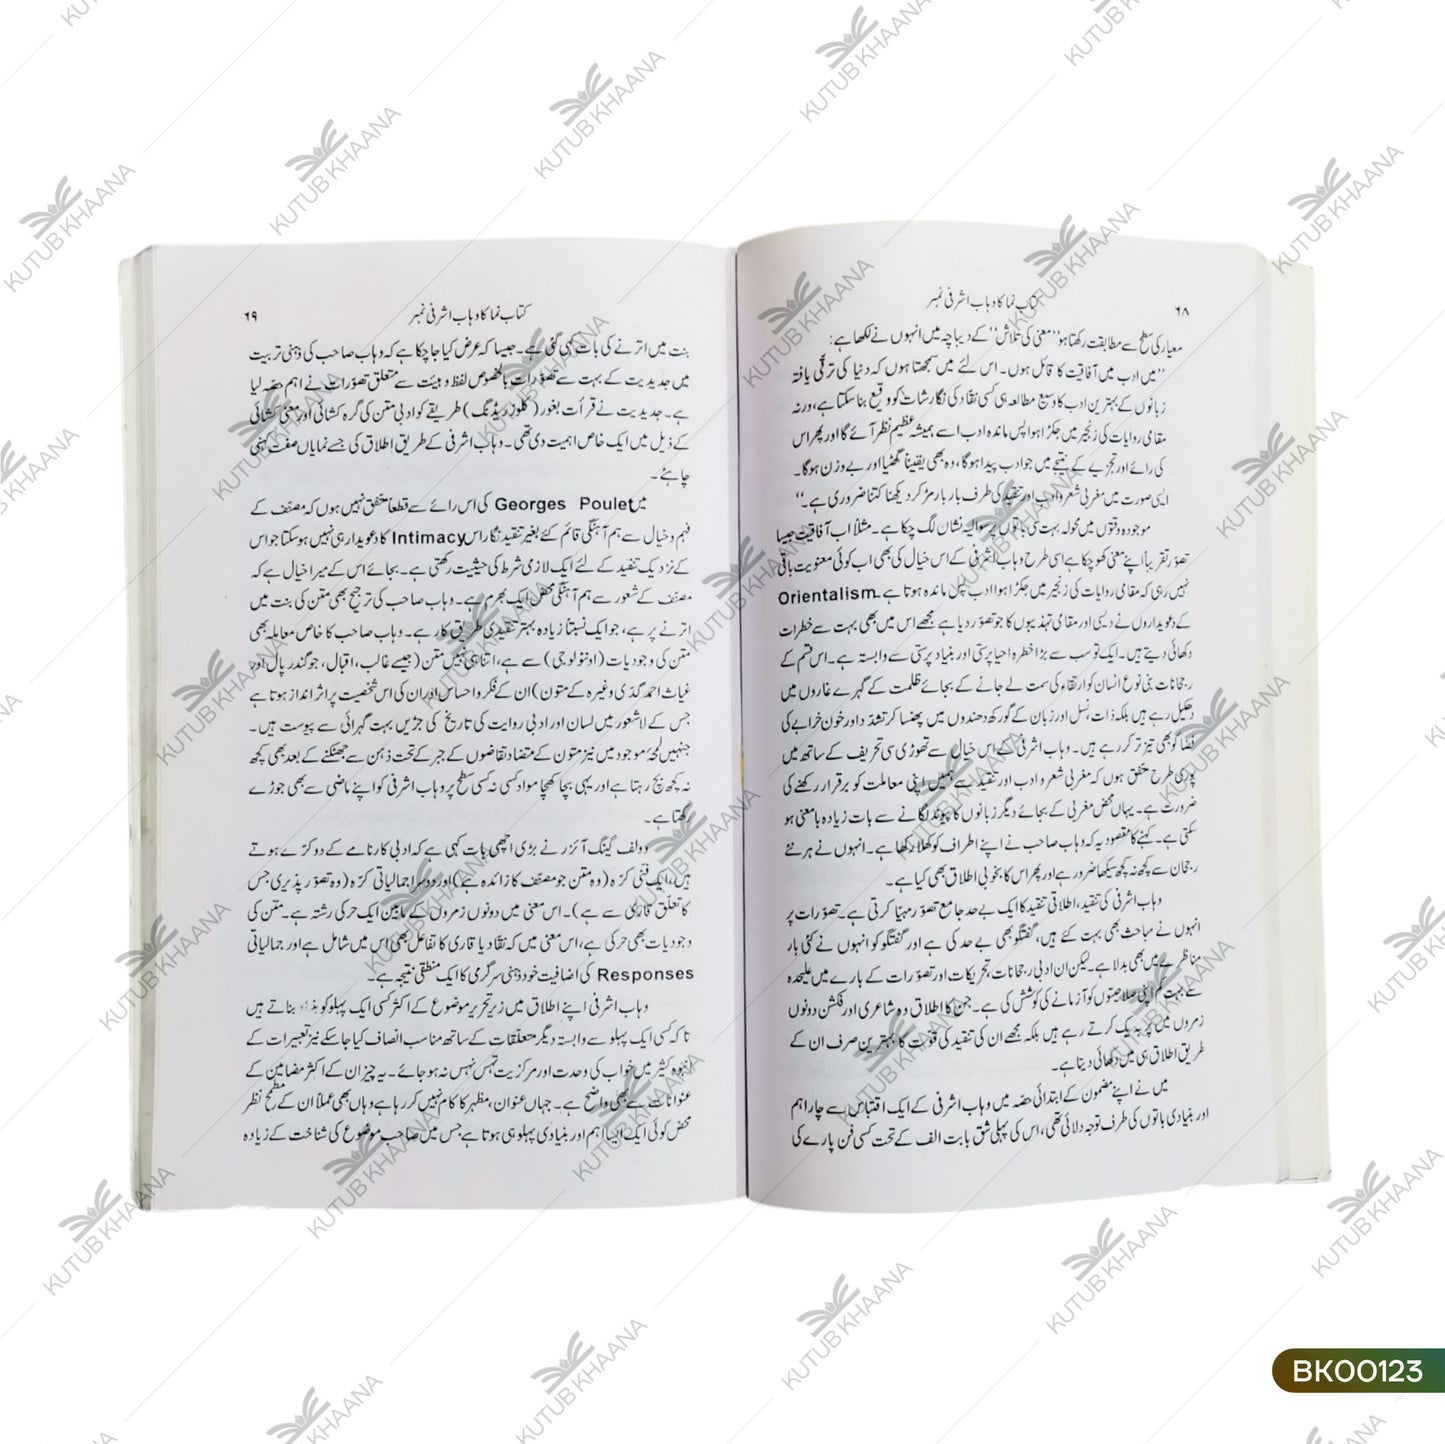 ۶۸
کتاب نما کا وہاب اشرفی نمبر
معیار کی سطح سے مطابقت رکھتا ہو ''معنی کی تلاش'' کے دیباچہ میں انہوں نے لکھا ہے:
''میں ادب میں آفاقیت کا قائل ہوں۔ اس لئے میں سمجھتا ہوں کہ دنیا کی ترقی یافتہ
زبانوں کے بہترین ادب کا وسیع مطالعہ ہی کسی نقاد کی نگارشات کو وقیع بنا سکتا ہے، ورنہ
مقامی روایات کی زنجیر میں جکڑا ہوا پس ماندہ ادب اسے ہمیشہ عظیم نظر آئے گا اور پھر اس
کی رائے اور تجزیے کے نتیجے میں جو ادب پیدا ہوگا، وہ بھی یقیناً گھٹیا اور بے وزن ہوگا۔
ایسی صورت میں مغربی شعر و ادب اور تنقید کی طرف بار بار مڑ کر دیکھنا کتنا ضروری ہے۔''
موجودہ وقتوں میں محولہ بہت سی باتوں پر سوالیہ نشان لگ چکا ہے۔ مثلاً اب آفاقیت جیسا
تصوّر تقریباً اپنے معنی کھو چکا ہے اسی طرح وہاب اشرفی کے اس خیال کی بھی اب کوئی معنویت باقی
نہیں رہی کہ مقامی روایات کی زنجیر میں جکڑا ہوا ادب پس ماندہ ہوتا ہے۔ Orientalism
کے دعویداروں نے دیسی اور مقامی تہذیبوں کا جو تصوّر دیا ہے مجھے اس میں بھی بہت سے خطرات
دکھائی دیتے ہیں۔ ایک تو سب سے بڑا خطرہ احیا پرستی اور بنیاد پرستی سے وابستہ ہے۔ اس قسم کے
رجحانات بنی نوع انسان کو ارتقاء کی سمت لے جانے کے بجائے ظلمت کے گہرے غاروں میں
دھکیل رہے ہیں بلکہ ذات، نسل اور زبان کے گورکھ دھندوں میں پھنسا کر تشدّد اور خون خرابے کی
فضا کو بھی تیز تر کر رہے ہیں۔ وہاب اشرفی کے اس خیال سے تھوڑی سی تحریف کے ساتھ میں
پوری طرح متفق ہوں کہ مغربی شعر و ادب اور تنقید سے ہمیں اپنی معاملت کو برقرار رکھنے کی
ضرورت ہے۔ یہاں محض مغربی کے بجائے دیگر زبانوں کا پیوند لگانے سے بات زیادہ بامعنی ہو
سکتی ہے۔ کہنے کا مقصود یہ کہ وہاب صاحب نے اپنے اطراف کو کھلا رکھا ہے۔ انہوں نے ہر نئے
رجحان سے کچھ نہ کچھ سیکھا ضرور ہے اور پھر اس کا بخوبی اطلاق بھی کیا ہے۔
وہاب اشرفی کی تنقید، اطلاقی تنقید کا ایک بے حد جامع تصوّر مہیّا کرتی ہے۔ تصوّرات پر
انہوں نے مباحث بھی بہت کئے ہیں، گفتگو بھی بے حد کی ہے اور گفتگو کو انہوں نے کئی بار
مناظرے میں بھی بدلا ہے۔ لیکن ان ادبی رجحانات تحریکات اور تصوّرات کے بارے میں علیحدہ
سے بہت کم اپنی صلاحیتوں کو آزمانے کی کوشش کی ہے۔ جن کا اطلاق وہ شاعری اور فکشن دونوں
زمروں میں کرتے رہے ہیں بلکہ مجھے ان کی تنقید کی قوت کا بہترین صرف ان کے
طریق اطلاق ہی میں دکھائی دیتا ہے۔
میں نے اپنے مضمون کے ابتدائی حصّہ میں وہاب اشرفی کے ایک اقتباس سے چار اہم
اور بنیادی باتوں کی طرف توجہ دلائی تھی، اس کی پہلی شق بابت الف کے تحت کسی فن پارے کی
کتاب نما کا وہاب اشرفی نمبر
۶۹
بنت میں اترنے کی بات کہی گئی ہے۔ جیسا کہ عرض کیا جا چکا ہے کہ وہاب صاحب کی ذہنی تربیت
میں جدیدیت کے بہت سے تصوّرات بالخصوص لفظ و ہیئت سے متعلق تصوّرات نے اہم حصّہ لیا
ہے۔ جدیدیت نے قرأت بغور (کلوز ریڈنگ) طریقے کو ادبی متن کی گرہ کشائی اور معنی کشائی
کے ذیل میں ایک خاص اہمیت دی تھی۔ وہاب اشرفی کے طریق اطلاق کی جسے نمایاں صفت کہنی
چاہئے۔
میں Georges Poulet کی اس رائے سے قطعاً متفق نہیں ہوں کہ مصنّف کے
فہم و خیال سے ہم آہنگی قائم کئے بغیر تنقید نگار اس Intimacy کا دعویدار ہی نہیں ہو سکتا جو اس
کے نزدیک تنقید کے لئے ایک لازمی شرط کی حیثیت رکھتی ہے۔ بجائے اس کے میرا خیال ہے کہ
مصنّف کے شعور سے ہم آہنگی محض ایک بھرم ہے۔ وہاب صاحب کی ترجیح بھی متن کی بنت میں
اترنے پر ہے، جو ایک نسبتاً زیادہ بہتر تنقیدی طریق کار ہے۔ وہاب صاحب کا خاص معاملہ بھی
متن کی وجودیات (اونٹولوجی) سے ہے، اتنا ہی نہیں متن (جیسے غالب، اقبال، جوگندر پال اور
غیاث احمد گدّی وغیرہ کے متون) ان کے فکر و احساس اور ان کی اس شخصیت پر اثر انداز ہوتا ہے
جس کے لاشعور میں لسان اور ادبی روایت کی تاریخ کی جڑیں بہت گہرائی سے پیوست ہیں۔
جنہیں لمحۂ موجود میں نیز متون کے متضاد تقاضوں کے جبر کے تحت ذہن سے جھٹکنے کے بعد بھی کچھ
نہ کچھ بچ رہتا ہے اور یہی بچا کھچا مواد کسی نہ کسی سطح پر وہاب اشرفی کو اپنے ماضی سے بھی جوڑے
رکھتا ہے۔
وولف گینگ آئزر نے بڑی اچھی بات کہی ہے کہ ادبی کارنامے کے دو کرّے ہوتے
ہیں، ایک فنّی کرّہ (وہ متن جو مصنّف کا زائدہ ہے) اور دوسرا جمالیاتی کرّہ (وہ تصوّر پذیری جس
کا تعلّق قاری سے ہے)۔ اس معنی میں دونوں زمروں کے مابین ایک حرکی رشتہ ہے۔ متن کی
وجودیات بھی حرکی ہے، اس معنی میں کہ نقّاد یا قاری کا تفاعل بھی اس میں شامل ہے اور جمالیاتی
Responses کی اضافیت خود ذہنی سرگرمی کا ایک منطقی نتیجہ ہے۔
وہاب اشرفی اپنے اطلاق میں زیر تحریر موضوع کے اکثر کسی ایک پہلو کو بناتے ہیں
تاکہ کسی ایک پہلو سے وابستہ دیگر متعلّقات کے ساتھ مناسب انصاف کیا جا سکے نیز تعبیرات کے
انبوہ کثیر میں خواب کی وحدت اور مرکزیت تہس نہس نہ ہو جائے۔ یہ چیز ان کے اکثر مضامین کے
عنوانات سے بھی واضح ہے۔ جہاں عنوان، مظہر کا کام نہیں کر رہا ہے وہاں بھی عملاً ان کے مطمح نظر
محض کوئی ایک ایسا اہم اور بنیادی پہلو ہی ہوتا ہے جس میں صاحب موضوع کی شناخت کے زیادہ
KUTUB KHAANA
BK00123